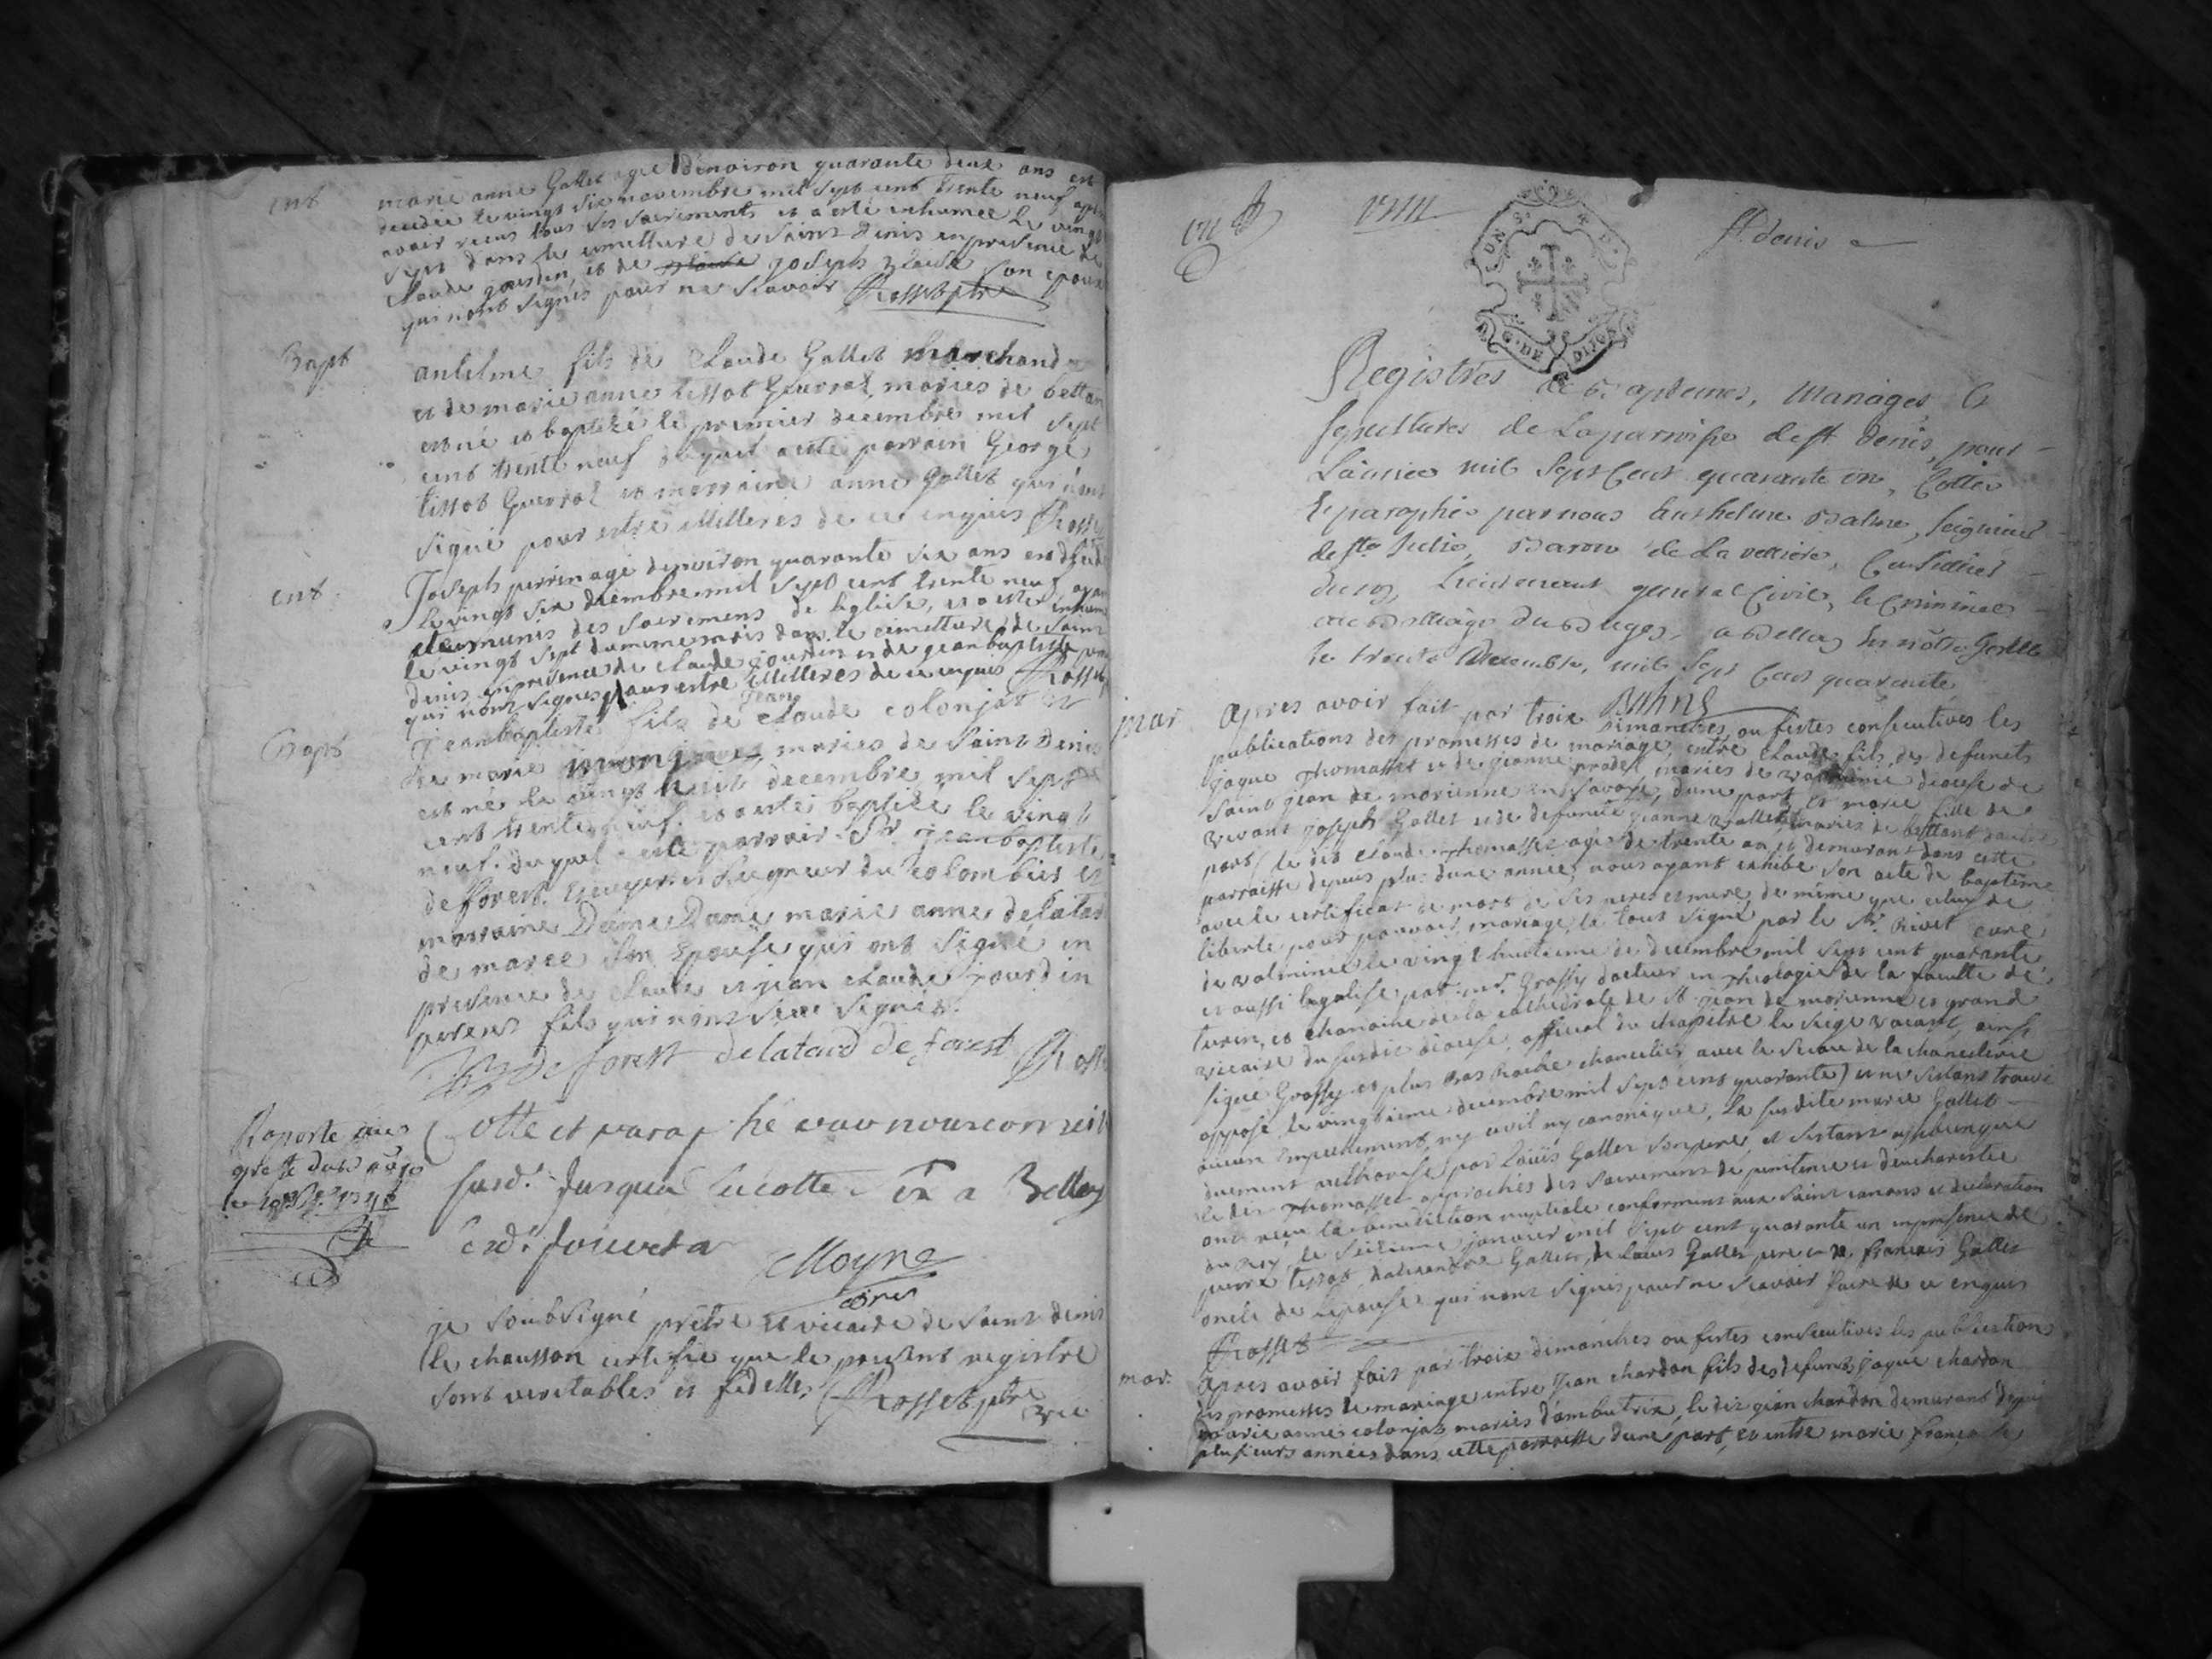 ent
marie anne Gallet agée denviron quarante deux ans est
decedée le vingt six novembre mil sept cent trente neuf après
avoir receus tous ses sacrements et a esté inhumée le vingt
sept dans le cimettiere de saint denis en presence de
Claude jourdin et de joseph son epoux
qui nont signés pour ne scavoir Rosset ptre
Bapt
antelme fils de Claude Gallet marchand
et de marie anne tissot Guerraz, mariés de bettan
est né et baptizé le premier decembre mil sept
cent trente neuf duquel a esté parrain George
tissot Guerraz et marraine anne Gallet qui n'ont
signé pour estre illitteres de ce enquis Rosset
ent.
Joseph perrin agé denviron quarante six ans est decedé
le vingt six decembre mil sept cent trente neuf ayant
esté munis des sacremens de leglise, et a esté inhumé
le vingt sept du meme mois dans le cimettiere de saint
denis en presence de Claude jourdin et de jean baptiste
qui nont signés pour estre illitteres de ce enquis Rosset
Bapt
Jean baptiste fils de jean claude colonjat et
de marie mariés de saint denis
est né le vingt huit decembre mil sept
cent trente neuf. et a esté baptizé le vingt
neuf. duquel a esté parrain Sr. jean baptiste
de forest Ecuyer et seigneur du Colombier et
marraine Dame Dame marie anne delatard
de maree son Epouse qui ont signé en
presence de claude et jean claude jourdin
pere et fils qui nont sceu signér.
De forest delatard de forest Rosset
Raporté au
greffe
Cotté et paraphé par nous conseil
susd. jusqua la cotte a Belley
lesd. jour et a
Moyne
je soubsigné prêtre et vicaire de saint denis
le chausson certifie que le present registre
sont veritables et fidelles Rosset ptre
vic
st denis
GEN. DE DIJON
Registres de Baptemes, Mariages, et
sepultures de la parroisse de st denis, pour
l'année mil sept cent quarante un, Cottés
et paraphés par nous Anthelme Balme, seigneur
de ste julie, Baron de la velliere, Conseiller
du roy, Lieutenant general Civil, et Criminel
au Balliage du Bugey, a Belley en nôtre hôtel
le trente decembre, mil sept cent quarante
Balme
mar
apres avoir fait par trois dimanches ou festes consecutives les
publications des promesses de mariage entre claude fils de defunts
jaque thomasset et de jeanne pradel mariés de valminie diocese de
saint jean de morienne en savoye, dune part, et marie fille de
vivant joseph Gallet et de defuncte jeanne mariés de bettant dautre
part, le dit claude thomasset agé de trente an et demeurant dans cette
parroisse depuis plus dune année, nous ayant exhibé son acte de baptême
avec le certificat de mort de ses pere et mere, de même que celuy de
liberté pour pouvoir mariage, le tout signé par le Sr. Rivet curé
de valminie le vingt huitieme de decembre mil sept cent quarante
et aussi legalisé par mr. Grassy docteur en theologie de la faculté de
turin, et chanoine de la cathedrale de st jean de morienne et grand
vicaire du susdit diocese, official du chapitre le siege vacant, ainsi
signé Grassy et plus bas chancelier avec le sceau de la chancelerie
apposé le vingtieme decembre mil sept cent quarante) et ne sestant trouvé
aucun empechement, ny civil ny canonique, la susdite marie Gallet
duement authorisé par Louis Gallet son pere, et sestant
le dit thomasset approchés des sacrements de penitence et deucharestie
ont receu la benediction nuptiale conformement aux saint canons et declaration
du Roy, le seizieme janvier mil sept cent quarante un en presence de
pierre tissot, dalexandre Gallet, de Louis Gallet pere et de francois Gallet
oncle de lepouse qui nont signés pour ne scavoir faire de ce enquis
Rosset
mar.
apres avoir fait par trois dimanches ou festes consecutives les publications
des promesses de mariage entre jean chardon fils des defunts jaque chardon
marie anne colonjat mariés d'ambutrix, le dit jean chardon demurant depuis
plusieurs années dans cette parroisse dune part, et entre marie francoise